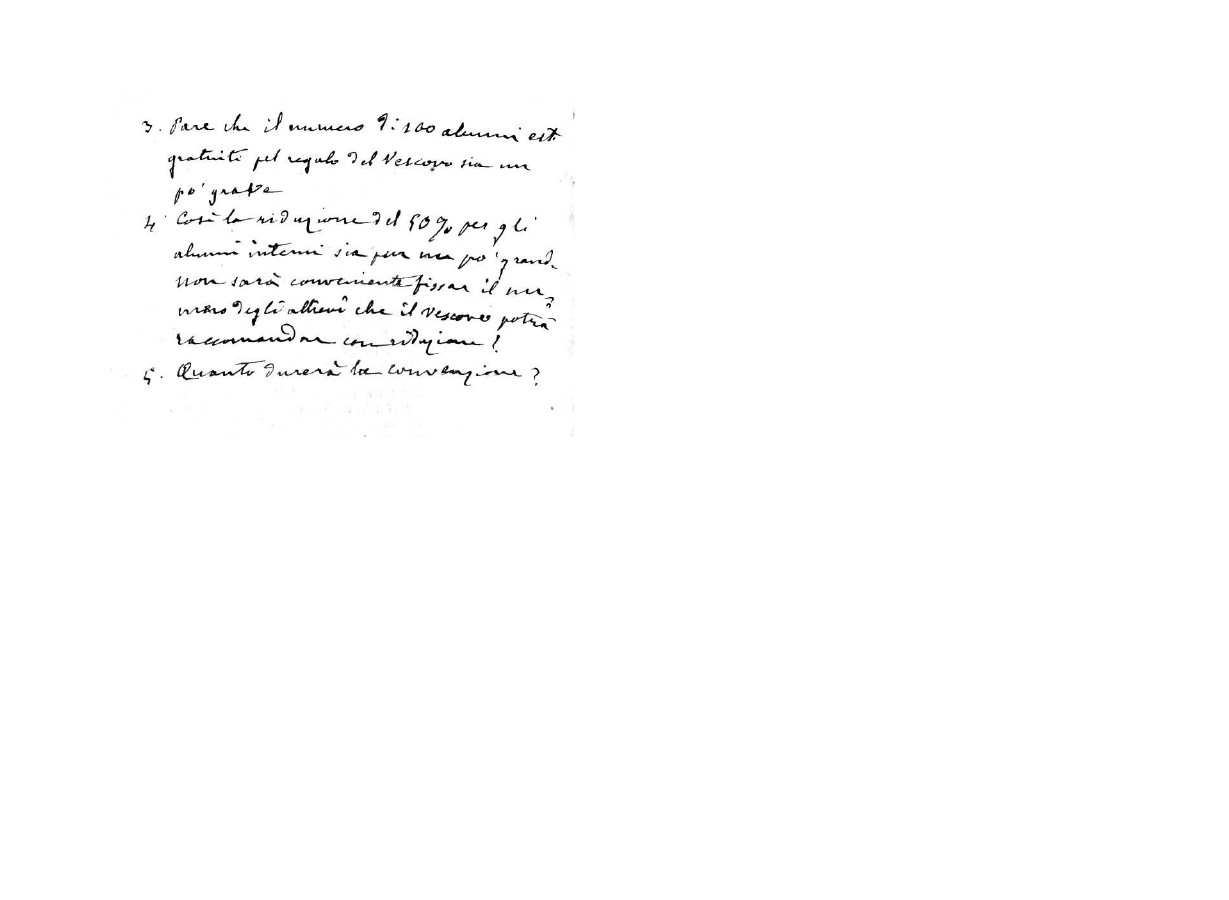 3. Pare che il numero di 100 alunni est.
gratuiti pel regalo del Vescovo sia un
po' grave
4. Così la riduzione del 50% per gli
alunni interni sia pur un po' grand.
non sarà conveniente fissar il nu-
mero degli allievi che il Vescovo potrà
raccomandar con riduzione?
5. Quanto durerà la convenzione?